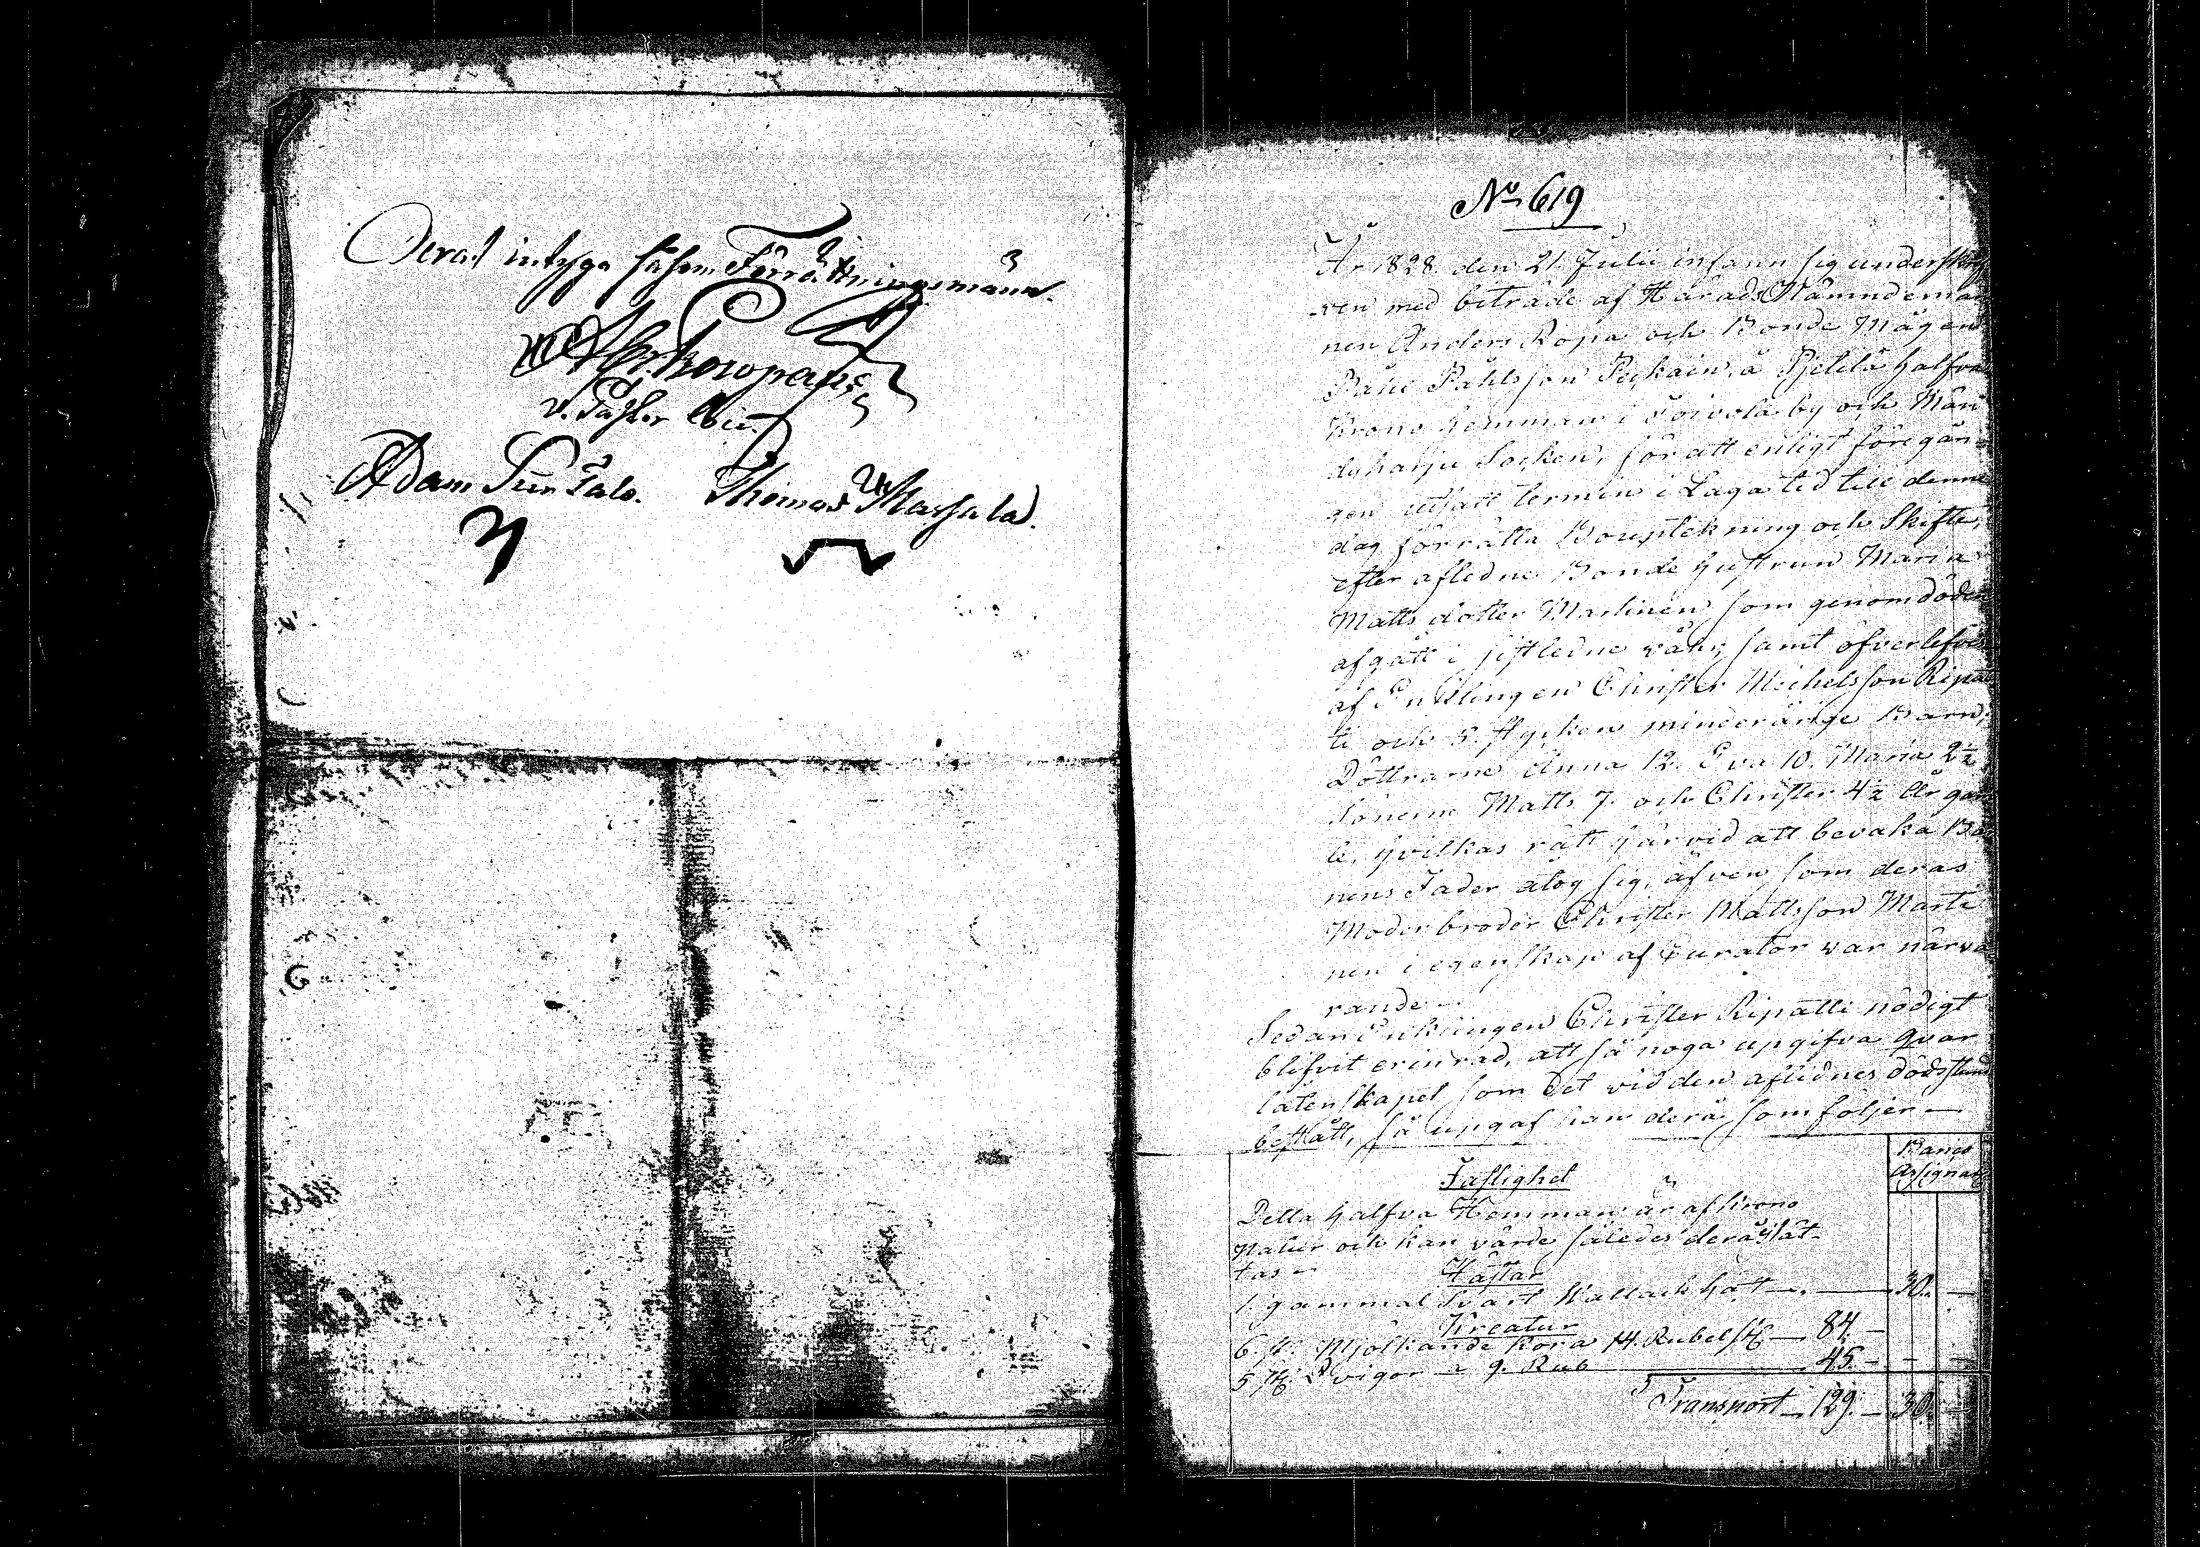 Derat intyga såsom Förrättningsmänn.
Adam Suntalo. Thomas Massala.
No 619
År 1828. den 21. Julii infann sig underskrif
ven med biträde af Härads Nämndeman
nen Anders Kopa och Bonde Mågen
Påhl Påhlsson å halfva
Krono hemman i Toivola by och Män
doharju Socken, för att enligt föregån-
gen utsatt termin i Laga tid till denne
dag förrätta Bouptekning och Skifte,
efter afledne Bonde hustrun Maria
Matts dotter Martinen, som genom döden
afgått i sistledne våhr, samt öfverlefves
af Enklingen Christer Michelsson Ripat
ti och 5. stycken minderårige Barn;
Döttrarne Anna 12. Eva 10. Maria 2½
Sönerne Matts 7. och Christer 4½ År gam
le, hvilkas rätt härvid att bevaka Bar
nens Fader ålog sig, äfven som deras
Moder broder Christer Mattsson Marti
nen i egenskap af Curator var närva
rande -
Sedan Enklingen Christer Ripatti nödigt
blifvit erinrad, att så noga upgifva qvar
låtenskapet som det vid den aflidnes dödsstund
bestått, så upgaf han derå som följer —
Banco
Assignat
Fastighet
Detta halfva Hemman är af Krono
Natur och kan värde således derå ej sät-
tas -
Hästar
1. gammal Svart Wallack häst — 30. —
Kreatur
6. st. Mjölkande Kora 14. Rubel st — 84. —
5. st. Qvigor - 9. Rub — 45. — - —
Transport — 129. — 30. —